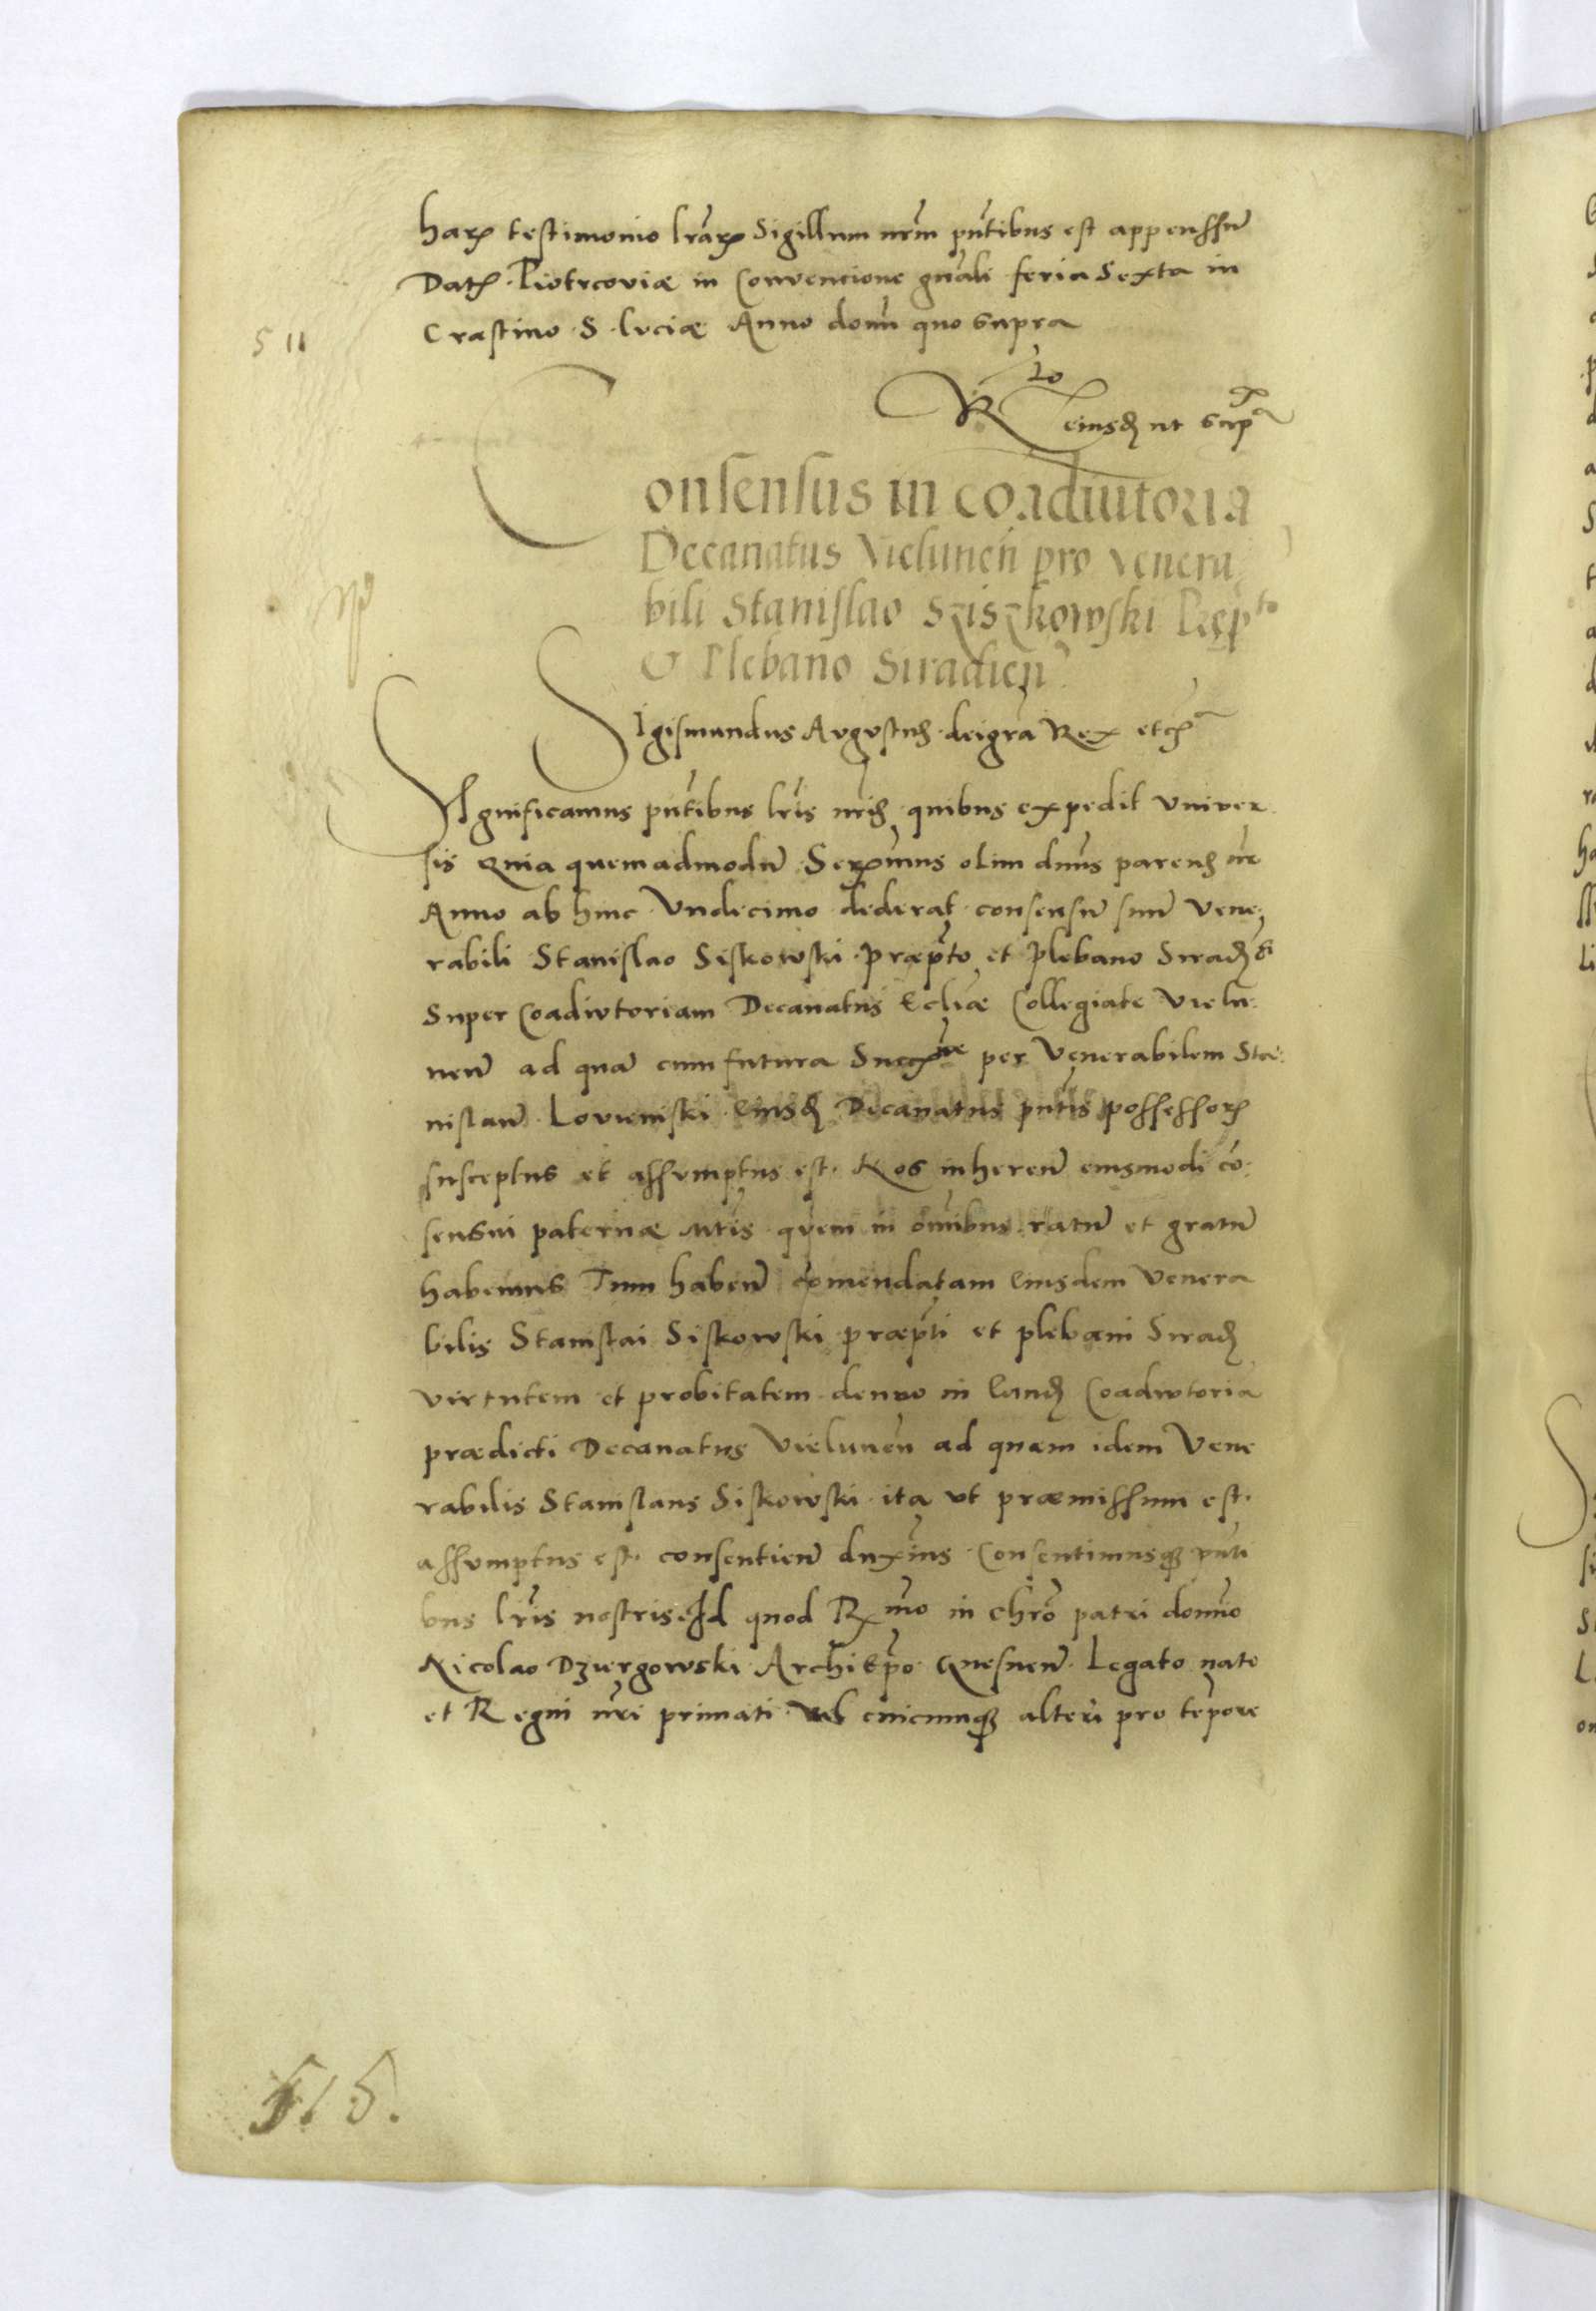 harꝝ testimonio lr̃arꝝ Sigillum nr̃m pñtibus est appenssũ
Datꝝ. Piotrcoviæ in Conventione gñali feria Sexta in
511
Crastino S. Luciæ Anno domi quo supra
R̃tio eiusdꝫ ut supra
Consensus in coadiutoria
Decanatus Vielunen̄ pro venera
bili Stanislao Sziszkowski Præpto
& Plebano Siradien̄
Sigismundus Augustus dei gr̃a Rex etcꝫ
Significamus pñtibus lr̃is nr̃is quibus expedit Univer
sis Quia quemadmodũ Serenmus olim dnũs parens nr̃
Anno ab hinc Undecimo dederat consensũ suũ Vene
rabili Stanislao Siskowski Præpto et Plebano Siradꝫ
Super Coadiutoriam Decanatus Ecliæ Collegiate Vielu
nen̄ ad quã cum futura Succne per Venerabilem Sta
nislaũ Lovieniski eiusdꝫ Decanatus pñtis possessorꝫ
susceptus et assumptus est. Nos inheren̄ eiusmodi cõ
sensui paternæ Mtis quem in omibus ratũ et gratũ
habemus Tum haben̄ comendatam eiusdem Venera
bilis Stanislai Siskowski præpti et plebani Siradꝫ
virtutem et probitatem denuo in eandꝫ Coadiutoriã
prædicti Decanatus Vielunen̄ ad quam idem Vene
rabilis Stanislaus Siskowski ita ut præmissum est.
assumptus est. consentien̄ duximus Consentimusqꝫ pñti
bus lr̃is nostris. Id quod Rmo in chr̃o patri domino
Nicolao Dziergowski Archiepo Gnesnen̄ Legato nato
et Regni nr̃i primati vel cuicunqꝫ alteri pro tẽpore
515.